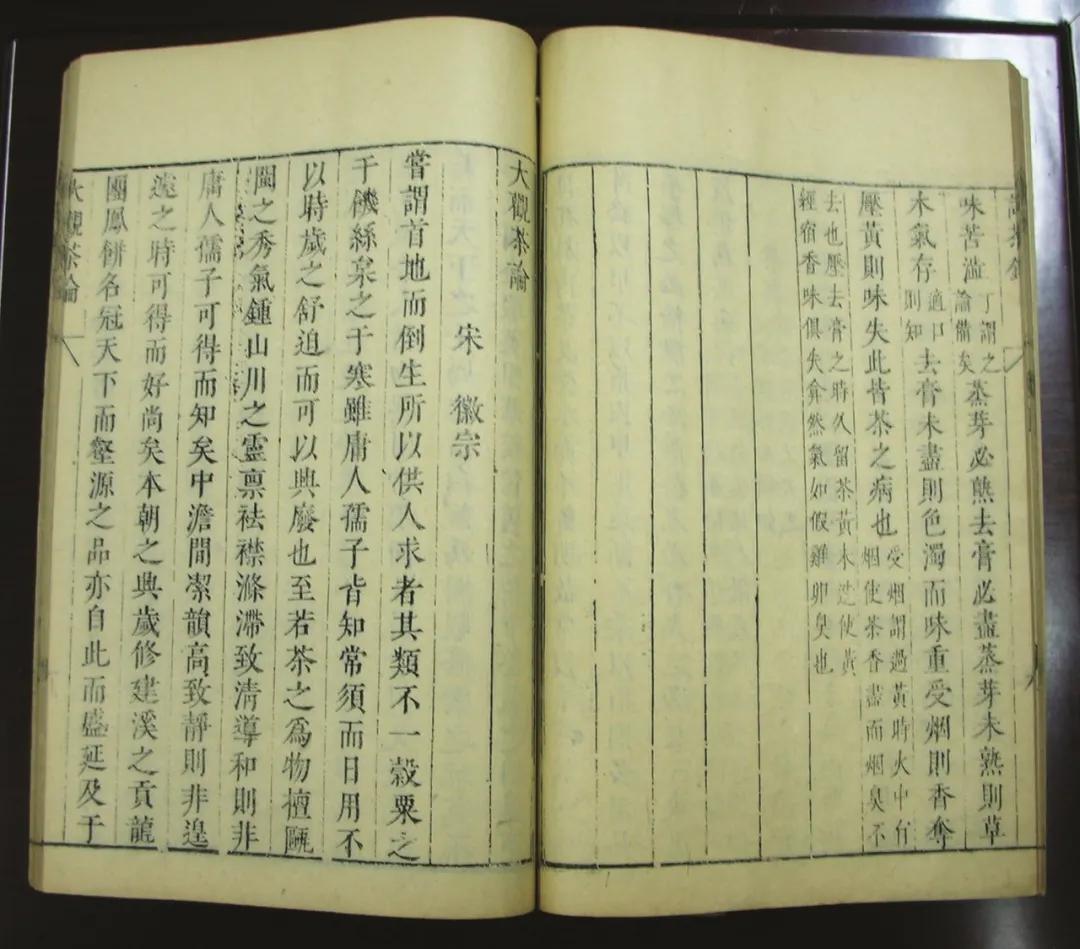 試茶錄
味苦澁丁謂之論備矣蒸芽必熟去膏必盡蒸芽未熟則草
木氣存適口則知去膏未盡則色濁而味重受烟則香奪
壓黃則味失此皆茶之病也受烟謂過黃時火中有烟使茶香盡而烟臭不
去也壓去膏之時久留茶黃未造使黃經宿香味俱失弇然氣如假雞卵臭也
大觀茶論
宋 徽宗
嘗謂首地而倒生所以供人求者其類不一穀粟之
于饑絲枲之于寒雖庸人孺子皆知常須而日用不
以時歲之舒迫而可以興廢也至若茶之爲物擅甌
閩之秀氣鍾山川之靈禀祛襟滌滯致清導和則非
庸人孺子可得而知矣中澹間潔韻高致靜則非遑
遽之時可得而好尚矣本朝之興歲修建溪之貢龍
團鳳餅名冠天下而壑源之品亦自此而盛延及于
大觀茶論